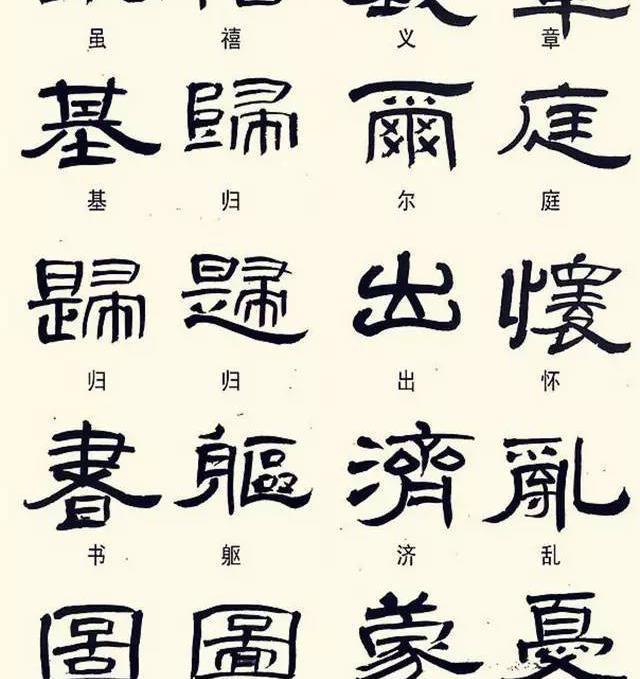 虽 禧 义 章
基 歸 爾 庭
基 归 尔 庭
歸 歸 出 懷
归 归 出 怀
書 軀 濟 亂
书 躯 济 乱
圖 圖 蒙 憂